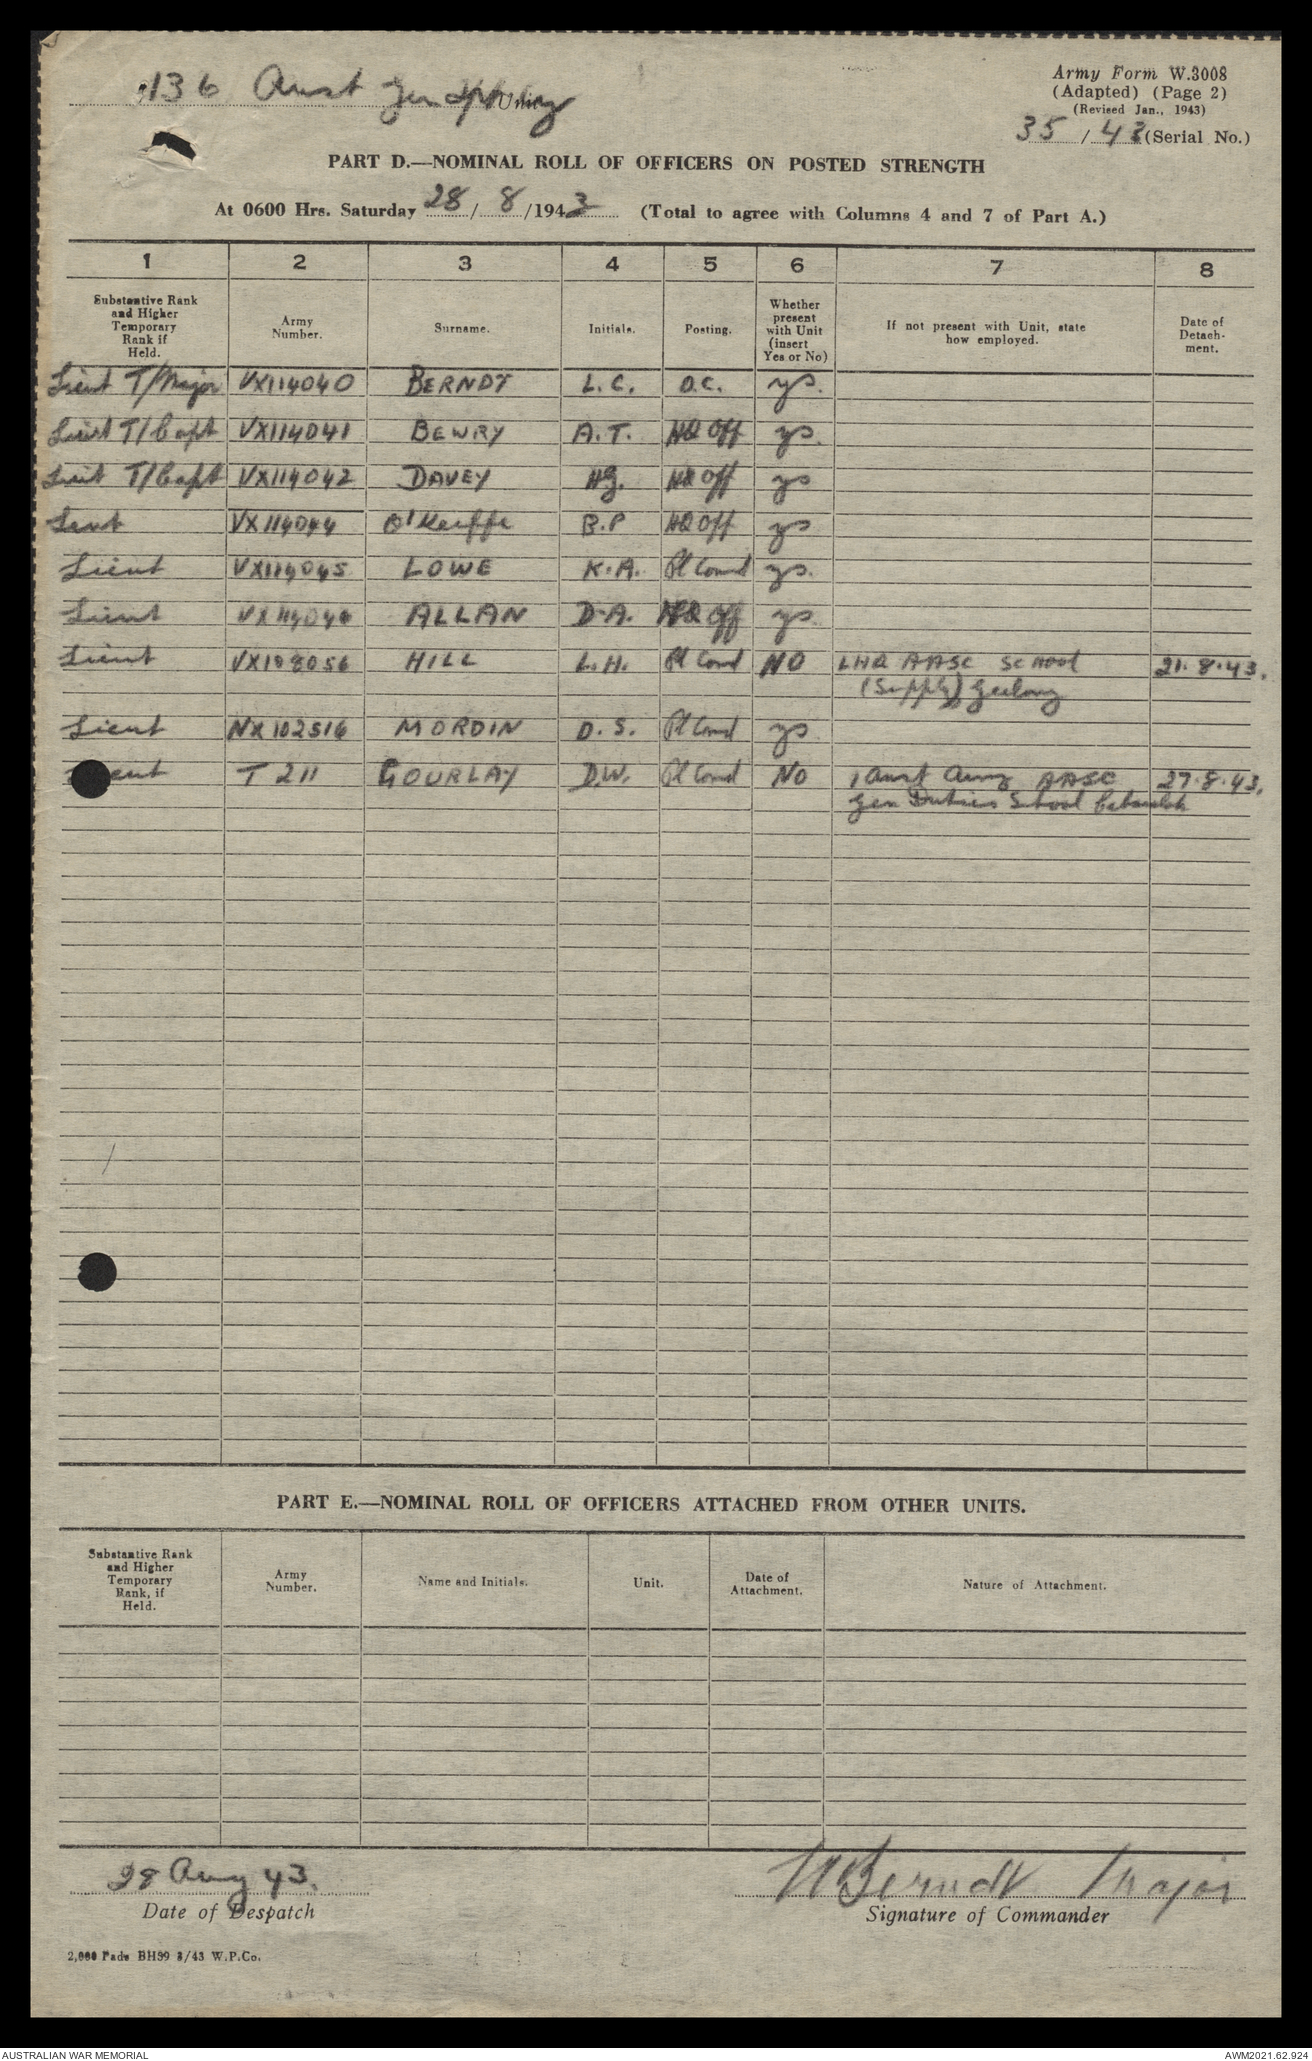 136 Aust Gen Tpt Coy Unit
Army Form W.3008
(Adapted) (Page 2)
(Revised Jan., 1943)
35 / 43 (Serial No.)
PART D.—NOMINAL ROLL OF OFFICERS ON POSTED STRENGTH
At 0600 Hrs. Saturday 28 / 8 /1943 (Total to agree with Columns 4 and 7 of Part A.)
1 2 3 4 5 6 7 8
Substantive Rank and Higher Temporary Rank if Held. Army Number. Surname. Initials. Posting. Whether present with Unit (insert Yes or No) If not present with Unit, state how employed. Date of Detach-ment.
Lieut T/Major VX114040 BERNDT L.C. O.C. yes.
Lieut T/Capt VX114041 BEWRY A.T. HQ Off yes.
Lieut T/Capt VX114042 DAVEY H.G. HQ Off yes
Lieut VX114044 O'Keeffe B.P HQ Off yes
Lieut VX114045 LOWE K.A. Pl Comd yes.
Lieut ALLAN D.A. HQ Off yes.
Lieut VX108056 HILL L.H. Pl Comd NO LHQ AASC School 21.8.43.
(Supply) Geelong
Lieut NX102516 MORDIN D.S. Pl Comd yes
Lieut T 211 GOURLAY D.W. Pl Comd No 1 Aust Army AASC 27.8.43.
Gen Duties School
PART E.—NOMINAL ROLL OF OFFICERS ATTACHED FROM OTHER UNITS.
Substantive Rank and Higher Temporary Rank, if Held. Army Number. Name and Initials. Unit. Date of Attachment. Nature of Attachment.
28 Aug 43. Berndt Major
Date of Despatch Signature of Commander
2,000 Pads BH39 3/43 W.P.Co.
AUSTRALIAN WAR MEMORIAL AWM2021.62.924